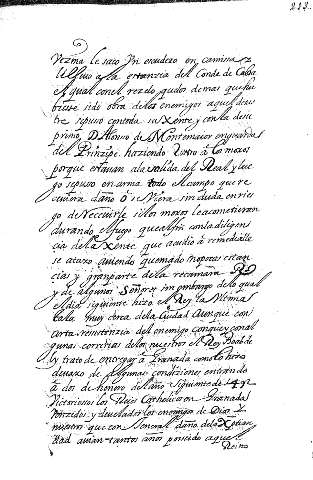 213.
Reyna le saco un escudero en camisa y
se fue a la estancia del Conde de Cabra
el qual con el rezelo que los demas que hu-
biese sido obra de los enemigos aquel desas-
tre se puso con toda su Xente, y con la de su
primo D. Alonso de Montemaior en guardia
del Prinçipe, haziendo rostro â los moros
porque estauan a la salida del Real, y lue-
go se puso en arma todo el campo que re-
çiuiera daño ô se viera sin duda en ries-
go de si los moros le acometieran
durando el fuego que al fin con la diligen-
cia de la Xente que acudio a remedialle
se atajo auiendo quemado muchas estan-
cias y gran parte de la recamara R.
y de algunos Señores sin embargo de lo qual
el dia siguiente hizo el Rey la
tala muy cerca de la Ciudad aunque con
harta resistencia del enemigo con quien con al-
gunas correrias de los nuestros el Rey Boabde-
ly trato de entregar â Granada como lo hizo
devaxo de algunas condiçiones entrando
â dos de henero del año siguiente de 1492
Victoriosos los Reies Catholicos en Granada
vençedores y deueladores los enemigos de Dios y
nuestros que con general daño de la Xptian-
dad auian tantos años poseido aquel
Reino